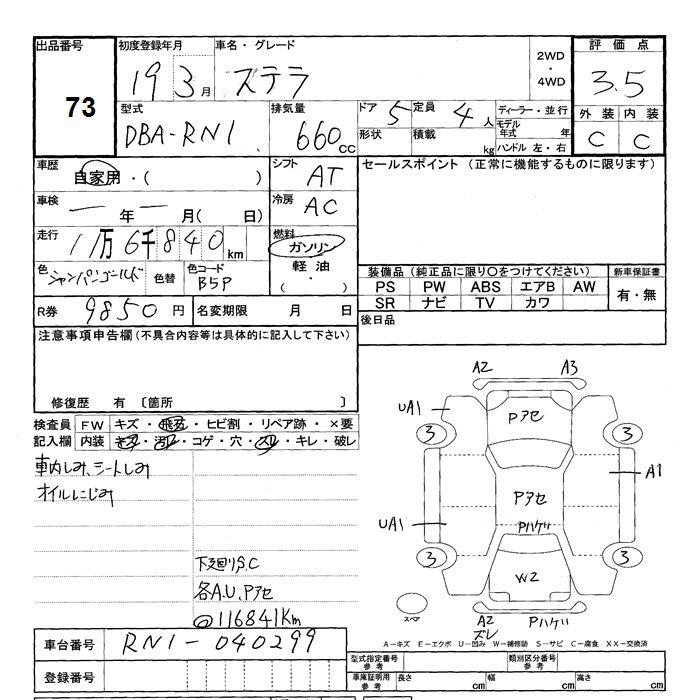 出品番号 初度登録年月 車名・グレード 2WD・4WD 評価点
73 19 3月 ステラ 3.5
型式 排気量 ドア 5 定員 4人 ディーラー・並行 外装 内装
DBA-RN1 660cc 形状 積載 kg モデル年式 年 C C
ハンドル 左・右
車歴 自家用・( ) シフト AT セールスポイント (正常に機能するものに限ります)
車検 ー年ー月(日) 冷房 AC
走行 11万6千840km 燃料 ガソリン
色 シャンパンゴールド 色替 色コード B5P 軽油
・
( )
装備品(純正品に限り〇をつけてください) 新車保証書
PS PW ABS エアB AW 有・無
SR ナビ TV カワ
R券 9850円 名変期限 月 日 後日品
注意事項申告欄(不具合内容等は具体的に記入して下さい)
修復歴 有 〔箇所 〕
検査員 FW キズ・飛石・ヒビ割・リペア跡・×要
記入欄 内装 キズ・汚れ・コゲ・穴・スレ・キレ・破レ
車内しみ、シートしみ
オイルにじみ
下廻りS.C
各A.U.Pアセ
@116841Km
A2 A3
UA1 Pアセ
3 3
A1
Pアセ
UA1 Pハゲ
3 3
W2
スペア A2 Pハゲ
ズレ
A-キズ E-エクボ U-凹み W-補修跡 S-サビ C-腐食 XX-交換済
車台番号 RN1-040299 型式指定番号 参考 類別区分番号 参考
登録番号 車庫証明用 参考 長さ cm 幅 cm 高さ cm